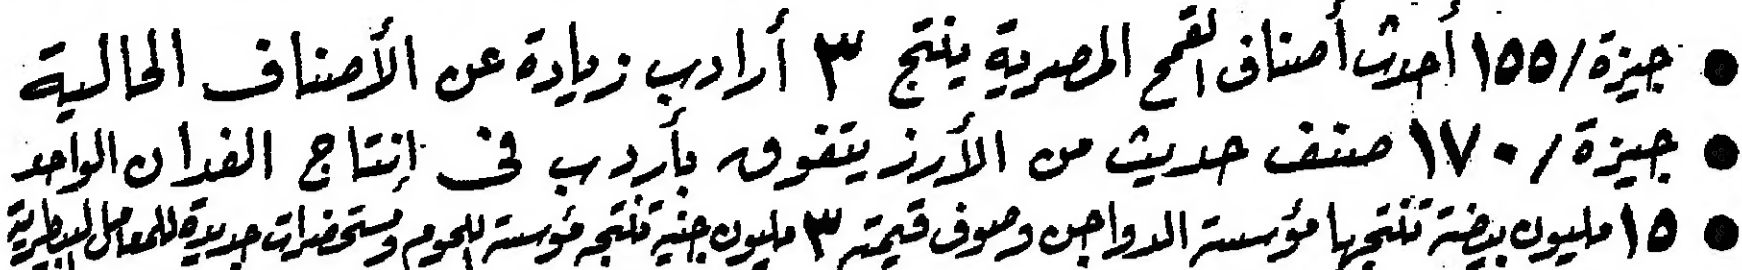 ● جيزة/١٥٥ أحدث أصناف القمح المصرية ينتج ٣ أرادب زيادة عن الأصناف الحالية
● جيزة/١٧٠ صنف حديث من الأرز يتفوق بأردب فى إنتاج الفدان الواحد
● ١٥ مليون بيضة تنتجها مؤسسة الدواجن وصوف قيمته ٣ مليون جنيه تنتجه مؤسسة اللحوم ومستحضرات جديدة للمعامل البيطرية